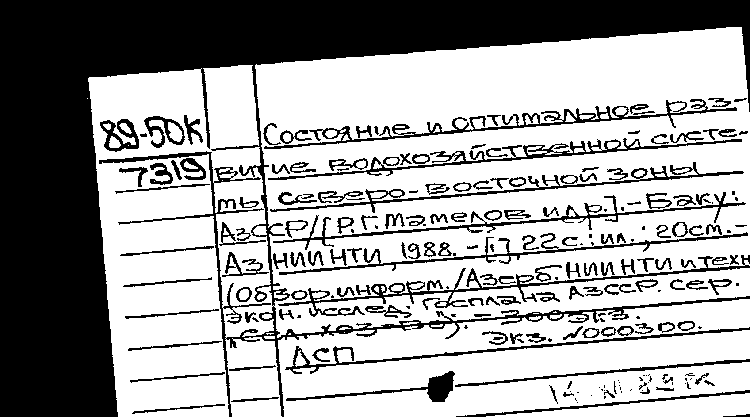 89-50К
7319
Состояние и оптимальное раз-
витие водохозяйственной систе-
мы северо-восточной зоны
АзССР/[Р.Г. Мамедов и др.].-Баку:
АзНИИНТИ, 1988. -[i], 22 с.: ил.; 20 см.-
(Обзор. информ./Азерб. НИИ НТИ и техн
экон. исслед. Госплана АзССР. Сер.
"Сел. хоз-во"). - 300 экз.
Экз. №000300.
ДСП
14 XI 89